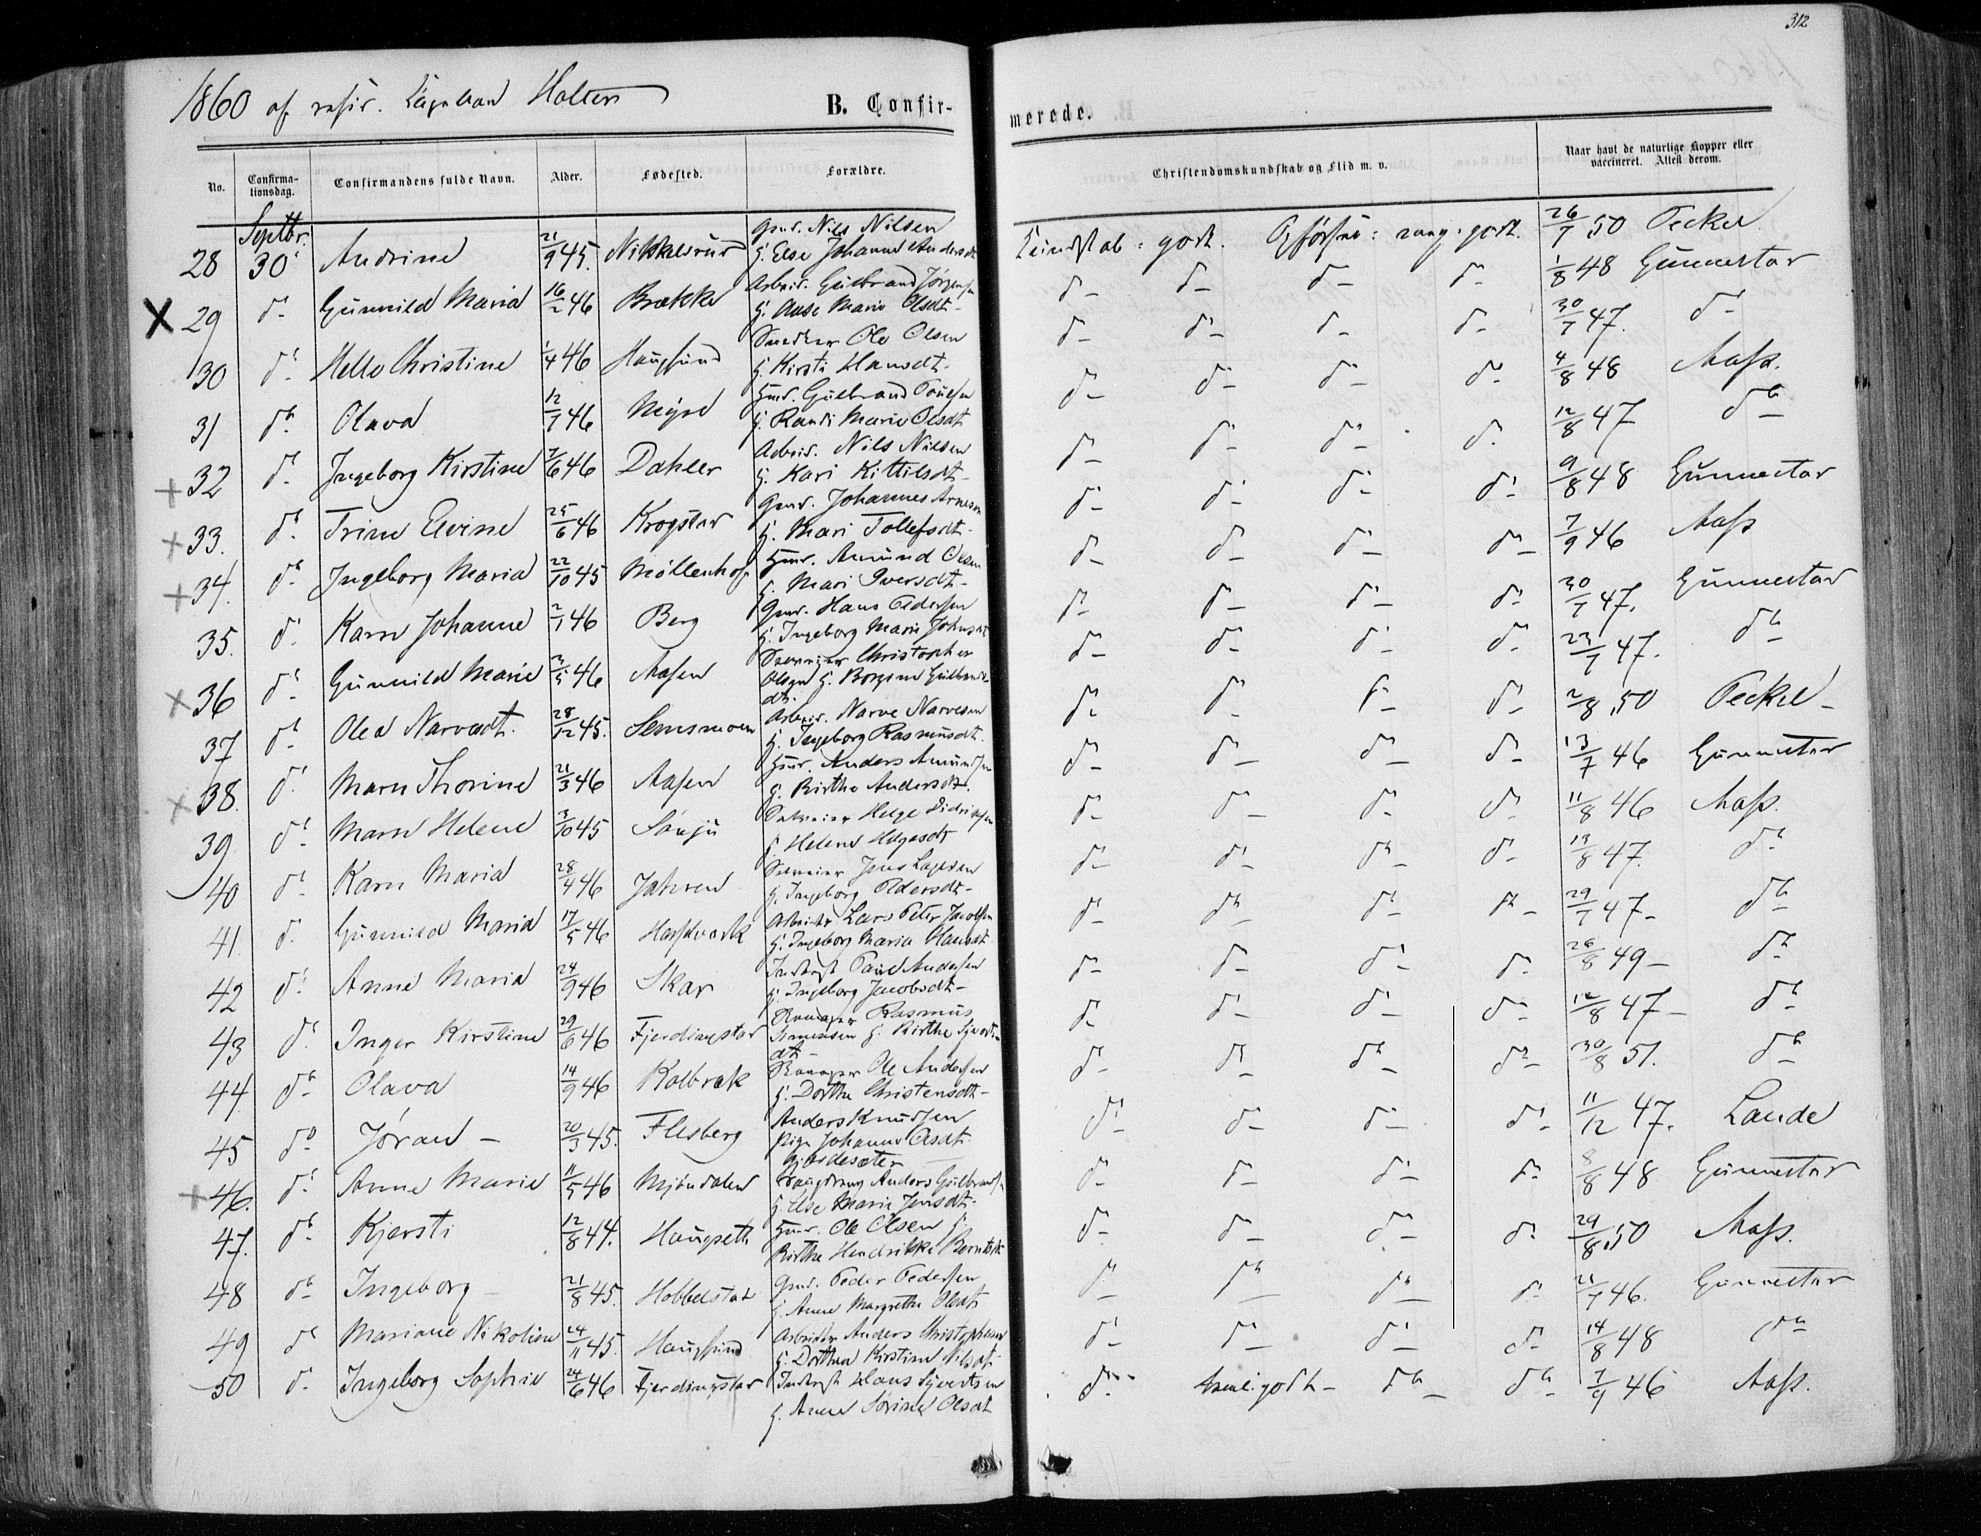 312
1860 af resid. Capellan Holter
B. Confir-
merede.
No.
Confirma-
tionsdag.
Confirmandens fulde Navn.
Alder.
Fødested.
Forældre.
Christendomskundskab og Flid m. v.
Naar havt de naturlige Kopper eller
vaccineret. Attest derom.
Septbr.
28 30 Andrine 21/9 45. Gmd. Nils Nilsen
H. Else Johanne Andersdt
Kundskab: godt. Opførsel: meg. godt. 26/7 50 Teckel
X 29 d° Gunnild Maria 16/2 46 Brække Arbeid. Gulbrand Jørgensen
H. Anse Marie Olsdt
d° d° d° d° 1/8 48 Gunnestad
30 d° Helle Christine 1/4 46 Hougsund Snedker Ole Olsen
H. Kirsti Hansdt.
d° d° d° d° 30/7 47. d°
31 d° Olava 12/7 46 Hmd. Gulbrand Poulsen
H. Randi Marie Olsdt
d° d° d° d° 4/8 48 Aass.
+ 32 d° Ingeborg Kirstine 7/6 46 Dahler Arbeid. Nils Nilsen
H. Kari Kittilsdt
d° d° d° d° 12/8 47 d°
+ 33. d° Trine Elvine 25/6 46 Krogstad Gmd. Johannes Arnesen
H. Mari Tollefsdt
d° d° d° d° 9/8 48 Gunnestad
+ 34. d° Ingeborg Maria 22/10 45 Møllenhof Hmd. Amund Olsen
H. Mari Iversdt
d° d° d° d° 7/9 46 Aass
35. d° Karen Johanne 2/1 46 Berg Gmd. Hans Pedersen
H. Ingeborg Marie Johnsdt
d° d° d° d° 30/7 47. Gunnestad
x 36 d° Gunnild Marie 3/5 46 Aasen Christopher
Olsen H. Borgine Gulbrands-
dt.
d° d° d° d° 23/7 47. d°
37 d° Olea Narvesdt. 28/12 45. Semsmoen Arbeid. Narve Narvesen
H. Ingeborg Rasmusdt.
d° d° d° d° 2/8 50 Teckel
x 38. d° Maren Thorine 21/3 46 Aasen Hmd. Anders Amundsen
H. Birthe Andersdt.
d° d° d° d° 13/7 46 Gunnestad
39 d° Maren Helene 3/10 45 Helge Didriksen
H. Helene Helgesdt
d° d° d° d° 11/8 46 Aass.
40 d° Karen Maria 28/4 46 Jahren Jens Lagesen
H. Ingeborg Pedersdt
d° d° d° d° 13/8 47. d°
41. d° Gunnild Maria 17/5 46 Arbeider Lars Peter Jacobsen
H. Ingeborg Maria Hansdt
d° d° d° d° 29/7 47 d°
42 d° Anne Maria 24/9 46 Skar Inderst Paul Andersen
H. Ingeborg Jacobsdt
d° d° d° d° 26/8 49 d°
43 d° Inger Kirstine 29/6 46 Fjerdingstad Rasmus
Simensen H. Birthe Sjverts-
dt
d° d° d° d° 12/8 47 d°
44 d° Olava 14/9 46 Kolbræk Ole Andersen
H. Dorthe Christensdt
d° d° d° d° 30/8 51. d°
45 d° Jøran 20/3 45. Flesberg Anders Knudsen
Pige Johanne Olsdt.
d° d° d° d° 11/12 47. Lande
+ 46. d° Anne Marie 11/5 46 Mjøndalen Anders Gulbrandsen
H. Else Marie Jensdt
d° d° d° d° 8/8 48 Gunnestad
47. d° Kjersti 12/8 44. Hougseth Hmd. Ole Olsen H.
Birthe Hendrikke Berntsdt
d° d° d° d° 29/8 50 Aass.
48 d° Ingeborg 21/8 45. Hobbelstad Gmd. Peder Pedersen
H. Anne Margrethe Olsdt
d° d° d° d° 21/7 46. Gunnestad
49 d° Mariane Nikoline 24/11 45. Hougsund Arbeider Anders Christophersen
H. Dorthea Kirstine Nilsdt
d° d° d° d° 14/8 48 d°
50 d° Ingeborg Sophie 24/6 46 Fjerdingstad Inderst Hans Syvertsen
H. Anne Sørine Olsdt
d° temli. godt d° d° 7/9 46 Aass.